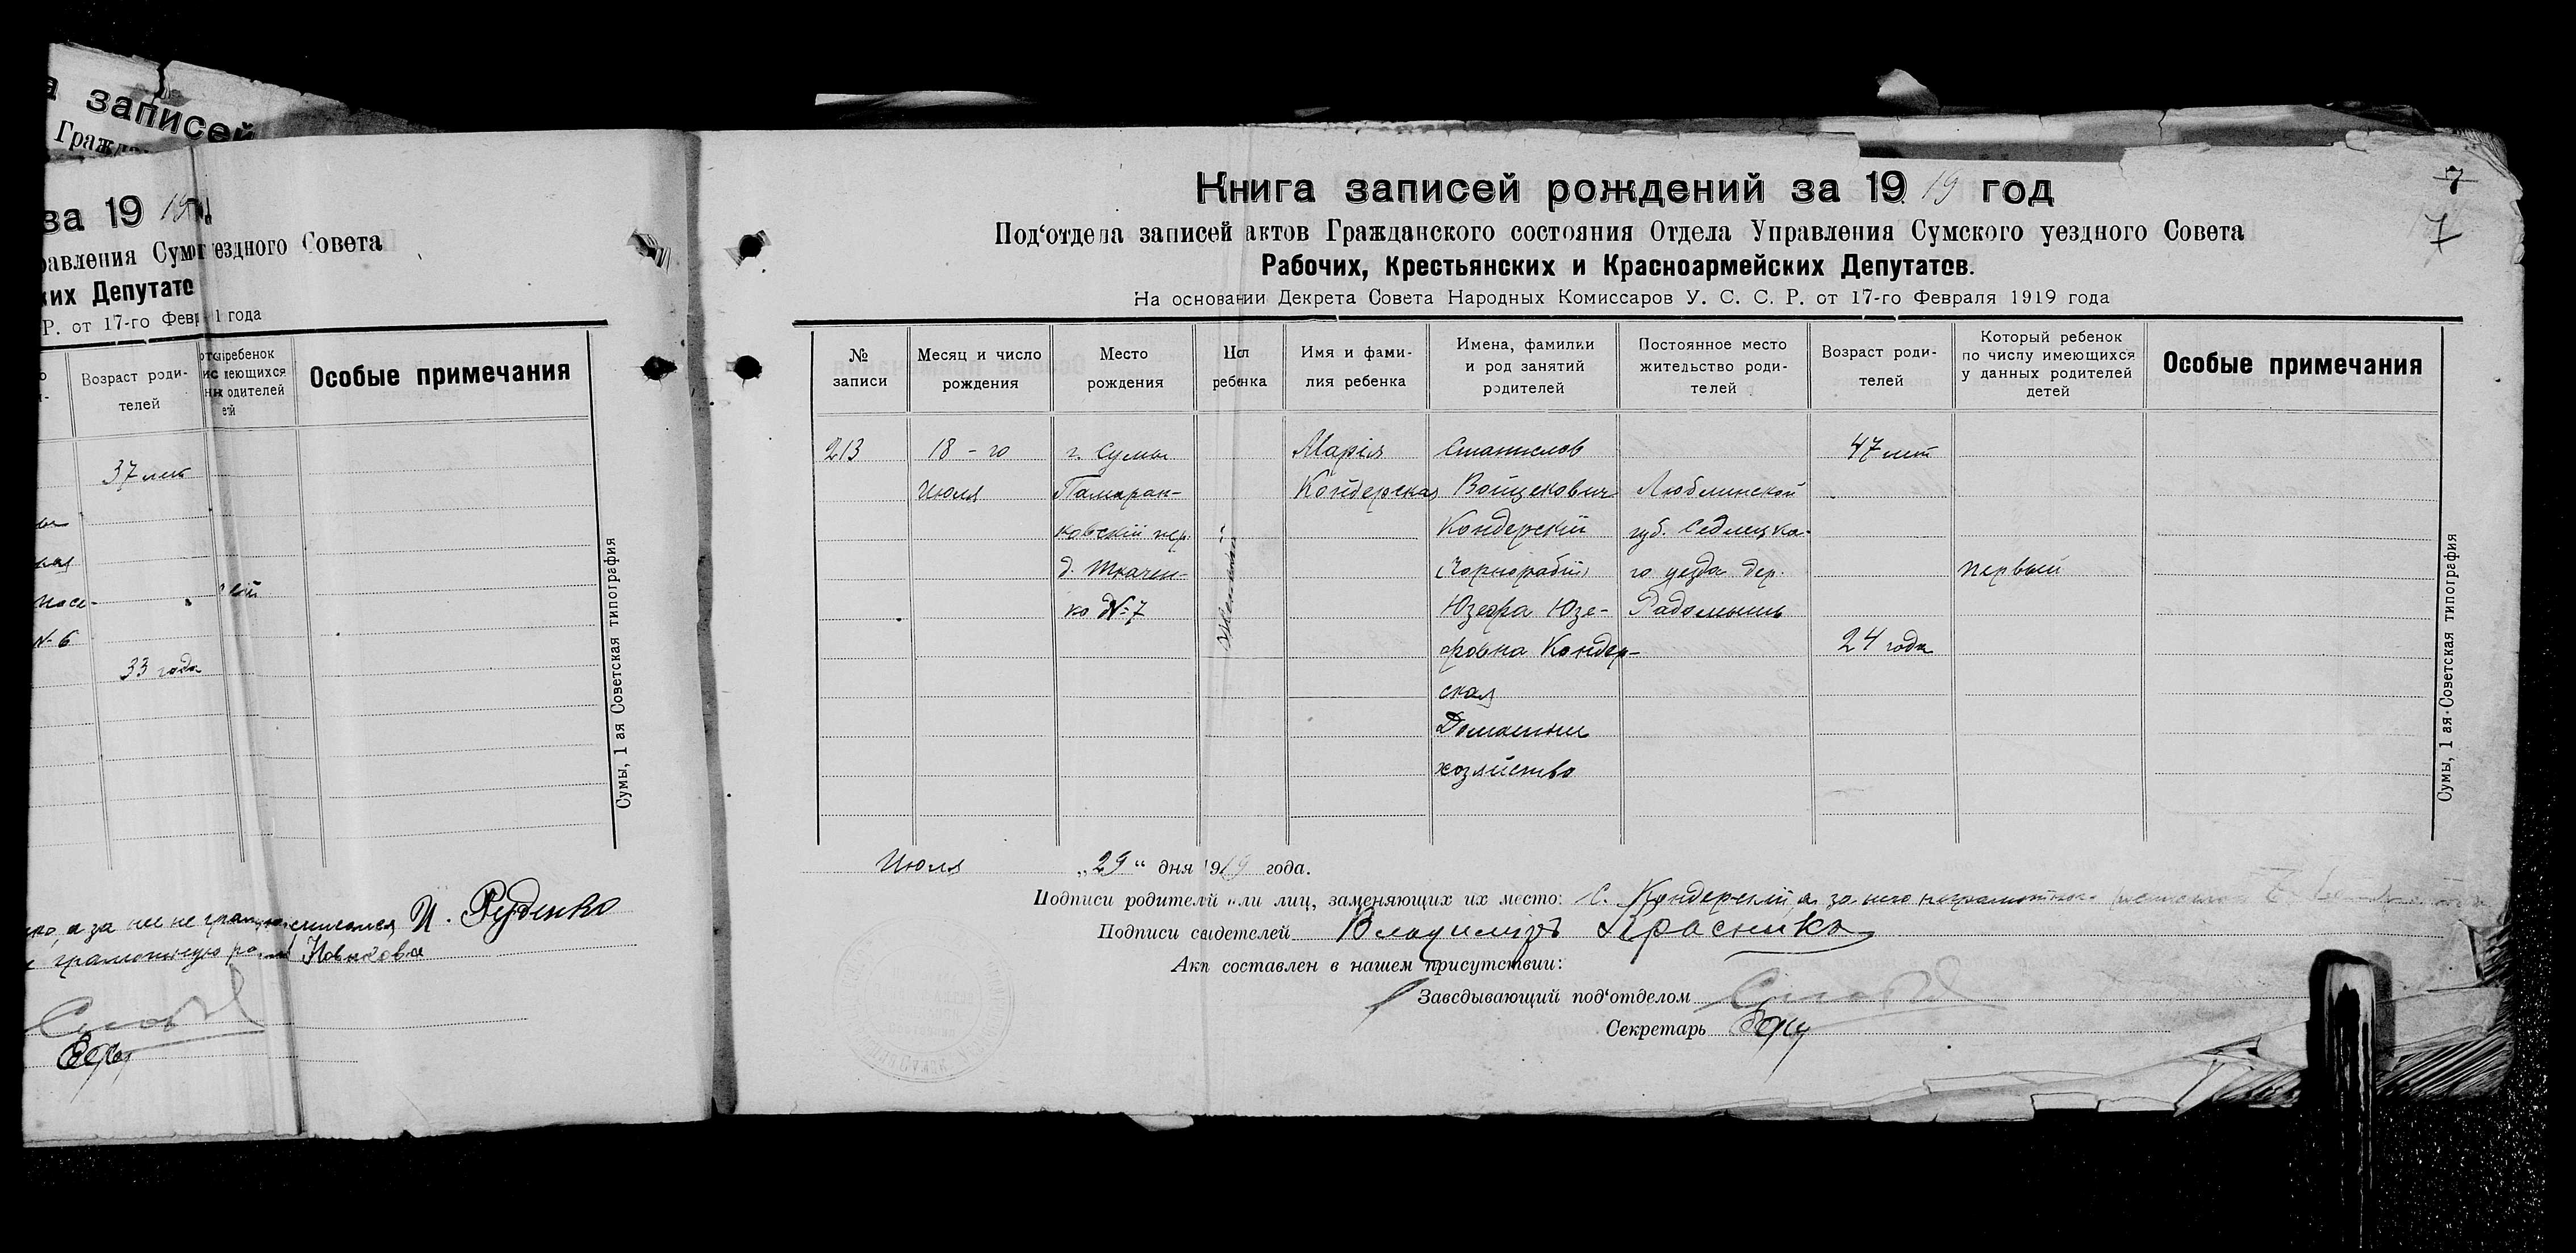 а записей
Гражда
за 1919 г.
равления Сум уездного Совета
ких Депутато
Р. от 17-го Февр 1 года
Возраст роди-
телей
ребенок
имеющихся
родителей
ей
Особые примечания
37 лет
ная
посе-
№ 6
33 года
Сумы, 1 ая Советская типография
а за нее не
И. Руденко
грамотную
Новикова
7
7
Книга записей рождений за 1919 год
Под‘отдела записей актов Гражданского состояния Отдела Управления Сумского уездного Совета
Рабочих, Крестьянских и Красноармейских Депутатов.
На основании Декрета Совета Народных Комиссаров У. С. С. Р. от 17-го Февраля 1919 года
№
записи
Месяц и число
рождения
Место
рождения
Пол
ребенка
Имя и фами-
лия ребенка
Имена, фамилии
и род занятий
родителей
Постоянное место
жительство роди-
телей
Возраст роди-
телей
Который ребенок
по числу имеющихся
у данных родителей
детей
Особые примечания
213
18 - го
Июля
г. Сумы
ковскій пер.
д. Ткачен-
ко № 7
Женский
Марія
Кондерская
Станислов
Войцекович
Кондерскій
(Чернорабій)
Юзефа Юзе-
фовна Кондер-
ская
Домашнее
хозяйство
Люблинской
губ. Седлецка-
го уезда дер.
Радомышь
47 лет
24 года
первый
Сумы, 1 ая Советская типография
Июля „29“ дня 1919 года.
Подписи родителей или лиц, заменяющих их место: С. Кондерскій, а за него неграмотного
Подписи свидетелей Владиміръ Красника
Акт составлен в нашем присутствии:
Заведывающий под‘отделом
Секретарь